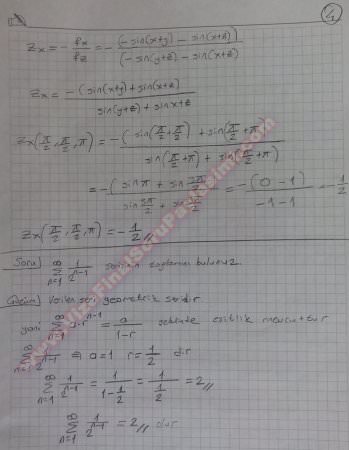 4
Zx = - Fx/Fz = - (-sin(x+y) - sin(x+z)) / (-sin(y+z) - sin(x+z))
Zx = -(sin(x+y) + sin(x+z)) / sin(y+z) + sin(x+z)
Zx(π/2, π/2, π) = -(sin(π/2 + π/2) + sin(π/2 + π)) / sin(π/2 + π) + sin(π/2 + π)
= -(sin π + sin 3π/2) / sin 3π/2 + sin 3π/2 = -(0 - 1) / -1 - 1 = -1/2
Zx(π/2, π/2, π) = -1/2 //
Soru) ∞ Σ n=1 1/2^(n-1) serisinin toplamını bulunuz.
Çözüm) Verilen seri geometrik seridir.
yani ∞ Σ n=1 a·r^(n-1) = a/(1-r) şeklinde eşitlik mevcuttur
∞ Σ n=1 1/2^(n-1) ⇒ a=1 r=1/2 dir
∞ Σ n=1 1/2^(n-1) = 1/(1-1/2) = 1/(1/2) = 2 //
∞ Σ n=1 1/2^(n-1) = 2 // dur